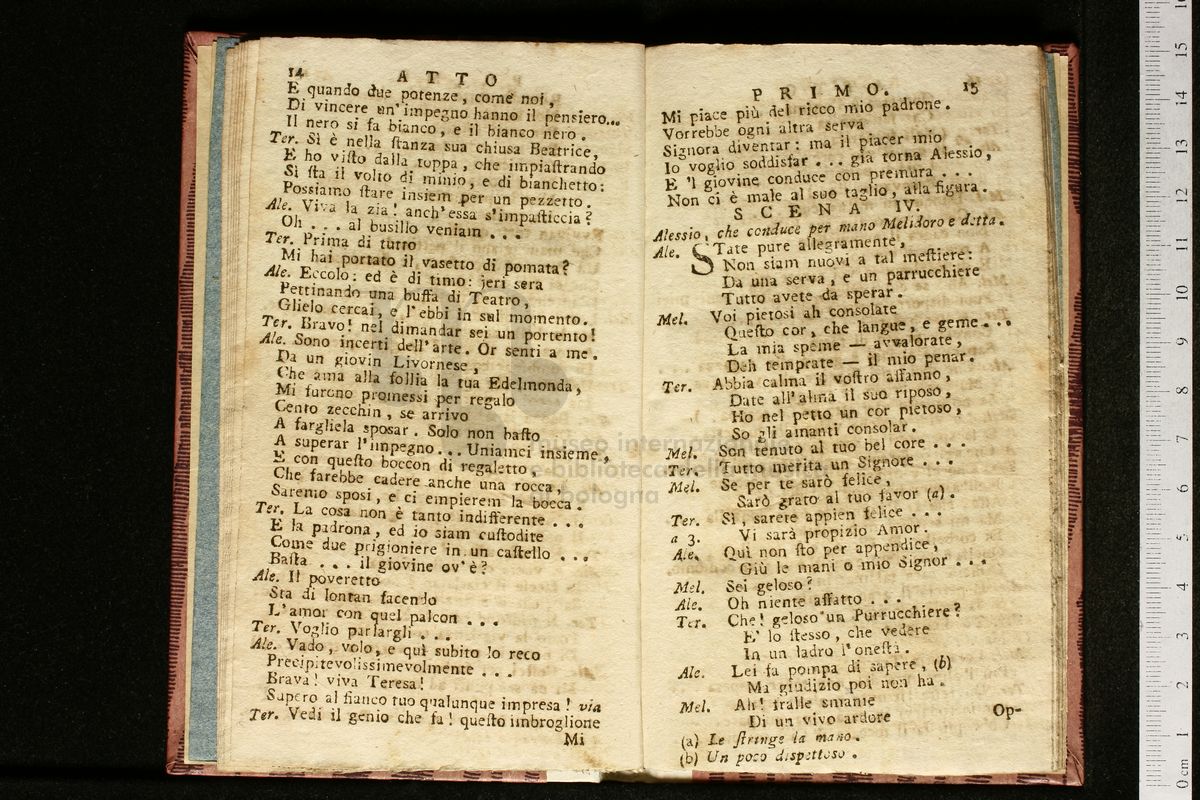 14 ATTO
E quando due potenze, come noi,
Di vincere un'impegno hanno il pensiero...
Il nero si fa bianco, e il bianco nero.
Ter. Sì è nella stanza sua chiusa Beatrice,
E ho visto dalla toppa, che impiastrando
Si sta il volto di minio, e di bianchetto:
Possiamo stare insiem per un pezzetto.
Ale. Viva la zia! anch'essa s'impasticcia?
Oh ... al busillo veniam ...
Ter. Prima di tutto
Mi hai portato il vasetto di pomata?
Ale. Eccolo: ed è di timo: jeri sera
Pettinando una buffa di Teatro,
Glielo cercai, e l'ebbi in sul momento.
Ter. Bravo! nel dimandar sei un portento!
Ale. Sono incerti dell'arte. Or senti a me.
Da un giovin Livornese,
Che ama alla follia la tua Edelmonda,
Mi furono promessi per regalo
Cento zecchin, se arrivo
A fargliela sposar. Solo non basto
A superar l'impegno... Uniamci insieme,
E con questo boccon di regaletto,
Che farebbe cadere anche una rocca,
Saremo sposi, e ci empierem la bocca.
Ter. La cosa non è tanto indifferente ...
E la padrona, ed io siam custodite
Come due prigioniere in un castello ...
Basta ... il giovine ov'è?
Ale. Il poveretto
Sta di lontan facendo
L'amor con quel palcon ...
Ter. Voglio parlargli ...
Ale. Vado, volo, e quì subito lo reco
Precipitevolissimevolmente ...
Brava! viva Teresa!
Supero al fianco tuo qualunque impresa! via
Ter. Vedi il genio che fa! questo imbroglione
Mi
PRIMO. 15
Mi piace più del ricco mio padrone.
Vorrebbe ogni altra serva
Signora diventar: ma il piacer mio
Io voglio soddisfar ... già torna Alessio,
E 'l giovine conduce con premura ...
Non ci è male al suo taglio, alla figura.
SCENA IV.
Alessio, che conduce per mano Melidoro e detta.
Ale. STate pure allegramente,
Non siam nuovi a tal mestiere:
Da una serva, e un parrucchiere
Tutto avete da sperar.
Mel. Voi pietosi ah consolate
Questo cor, che langue, e geme...
La mia speme — avvalorate,
Deh temprate — il mio penar.
Ter. Abbia calma il vostro affanno,
Date all'alma il suo riposo,
Ho nel petto un cor pietoso,
So gli amanti consolar.
Mel. Son tenuto al tuo bel core ...
Ter. Tutto merita un Signore ...
Mel. Se per te sarò felice,
Sarò grato al tuo favor (a).
Ter. Sì, sarete appien felice ...
a 3. Vi sarà propizio Amor.
Ale. Quì non sto per appendice,
Giù le mani o mio Signor ...
Mel. Sei geloso?
Ale. Oh niente affatto ...
Ter. Che! geloso un Purrucchiere?
E' lo stesso, che vedere
In un ladro l'onestà.
Ale. Lei fa pompa di sapere, (b)
Ma giudizio poi non ha.
Mel. Ah! fralle smanie
Di un vivo ardore
Op-
(a) Le stringe la mano.
(b) Un poco dispettoso.
museo internazionale
e biblioteca della
di bologna
0 cm 1 2 3 4 5 6 7 8 9 10 11 12 13 14 15